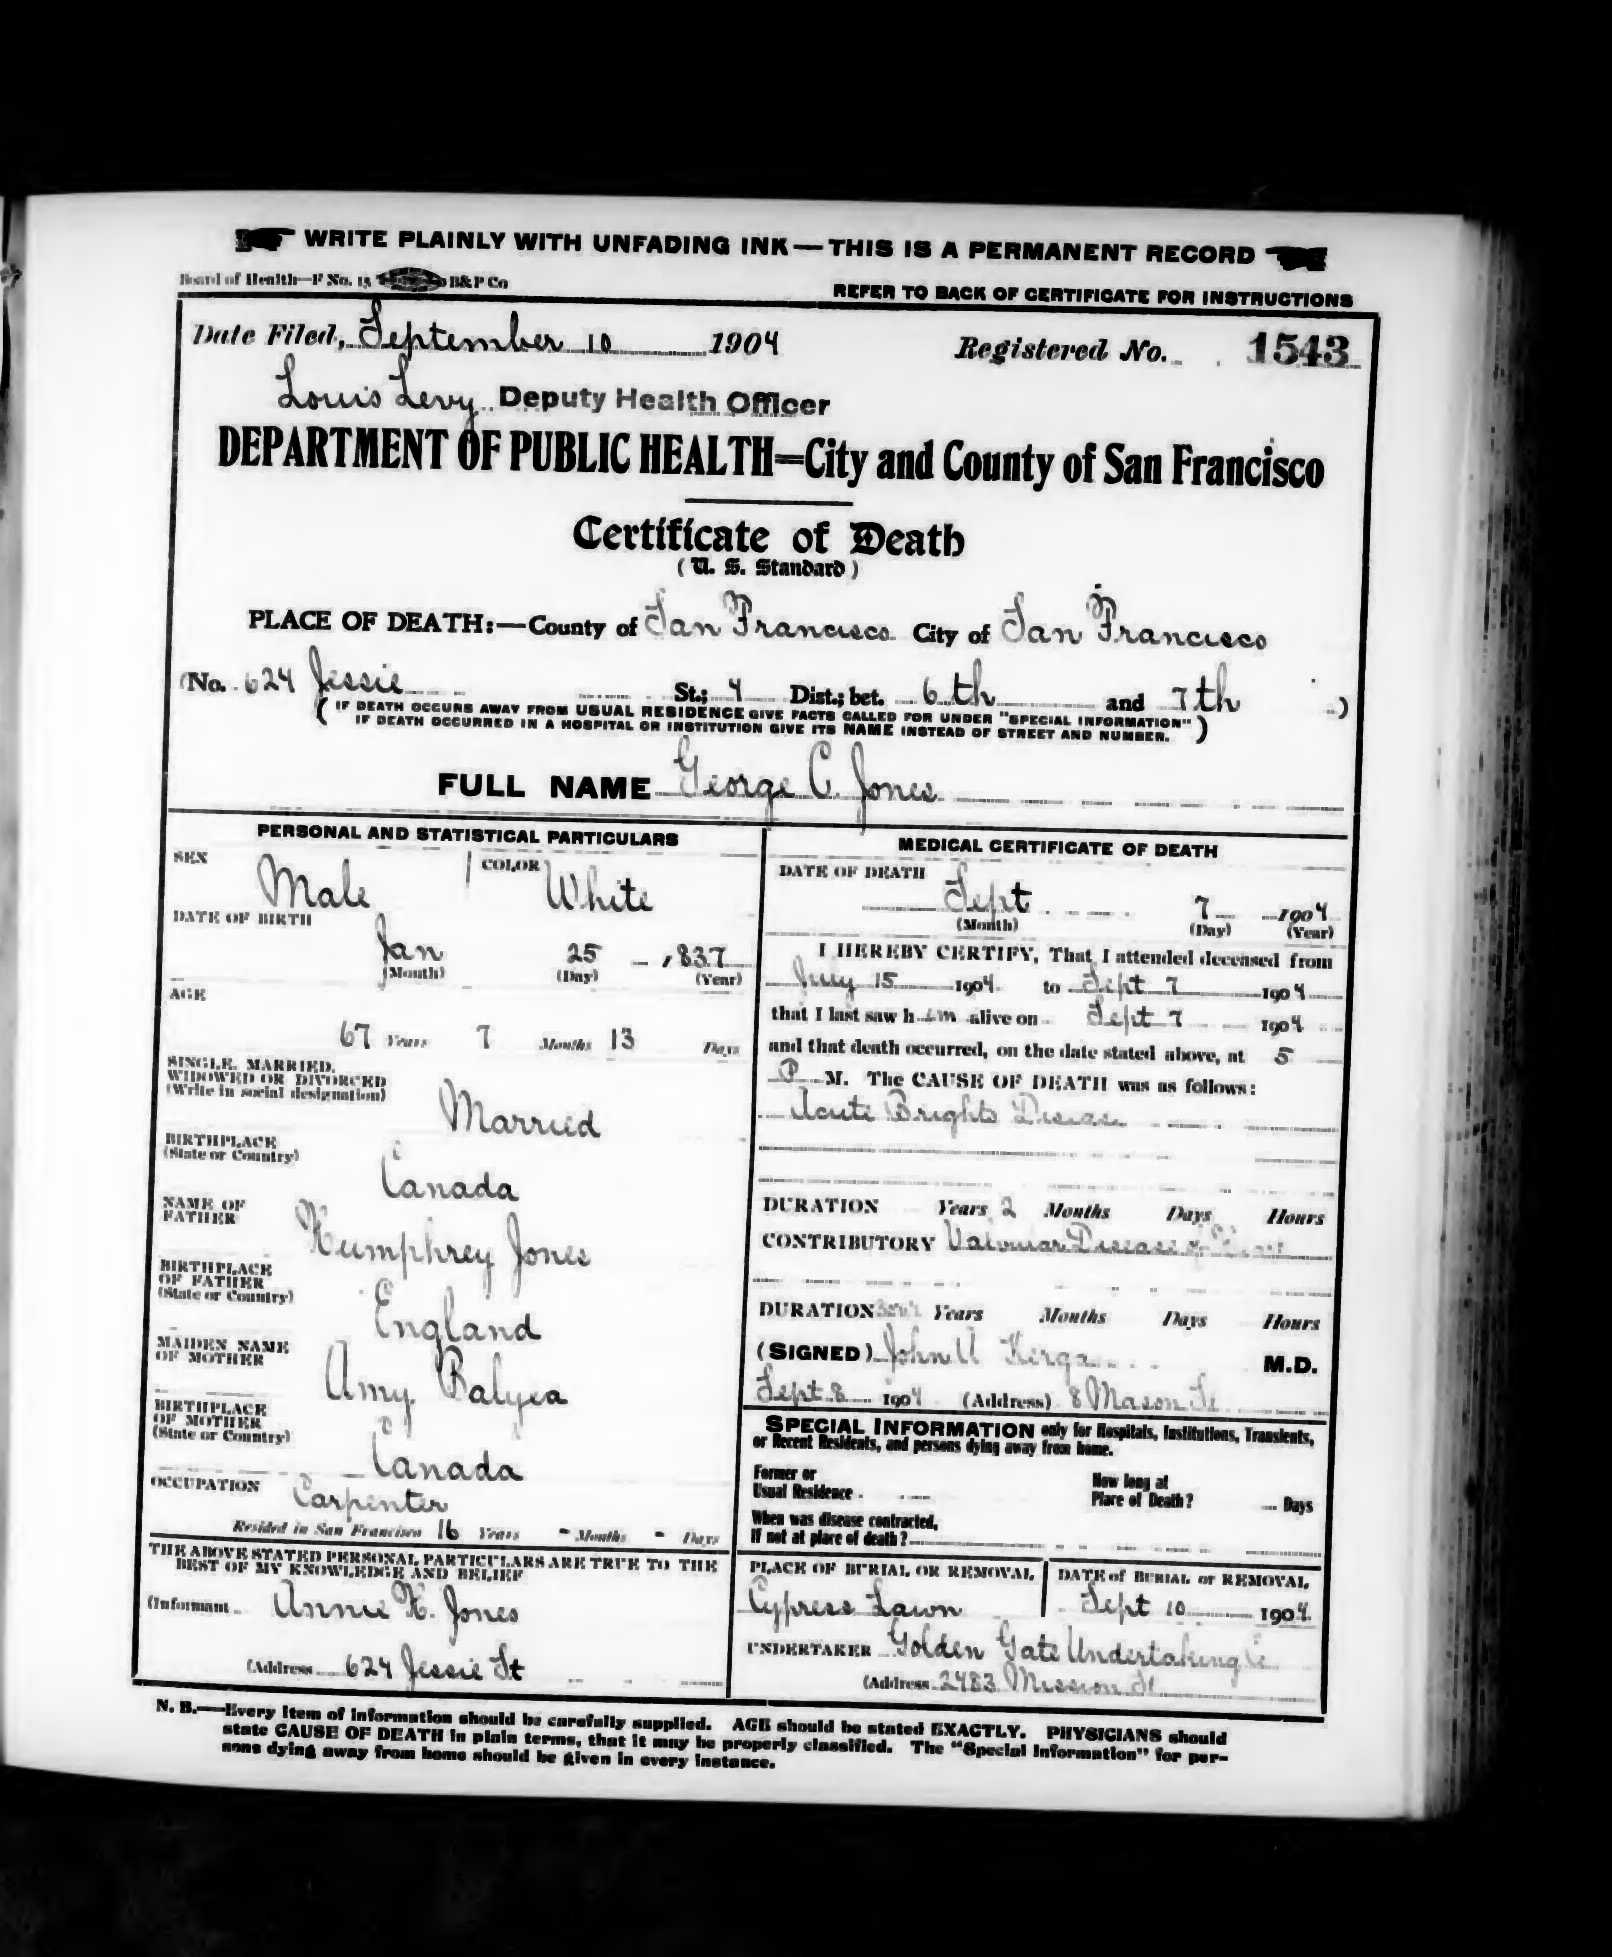 WRITE PLAINLY WITH UNFADING INK—THIS IS A PERMANENT RECORD
Board of Health—F No. 15 B&P Co
REFER TO BACK OF CERTIFICATE FOR INSTRUCTIONS
Date Filed, September 10 1904 Registered No. 1543
Louis Levy Deputy Health Officer
DEPARTMENT OF PUBLIC HEALTH=City and County of San Francisco
Certificate of Death
(U. S. Standard)
PLACE OF DEATH:—County of San Francisco City of San Francisco
(No. 624 Jessie St.; 4 Dist.; bet. 6th and 7th )
( IF DEATH OCCURS AWAY FROM USUAL RESIDENCE GIVE FACTS CALLED FOR UNDER "SPECIAL INFORMATION"
IF DEATH OCCURRED IN A HOSPITAL OR INSTITUTION GIVE ITS NAME INSTEAD OF STREET AND NUMBER. )
FULL NAME George C. Jones
PERSONAL AND STATISTICAL PARTICULARS
SEX Male COLOR White
DATE OF BIRTH
Jan 25 1837
(Month) (Day) (Year)
AGE
67 Years 7 Months 13 Days
SINGLE, MARRIED,
WIDOWED OR DIVORCED
(Write in social designation)
Married
BIRTHPLACE
(State or Country)
Canada
NAME OF
FATHER
Humphrey Jones
BIRTHPLACE
OF FATHER
(State or Country)
England
MAIDEN NAME
OF MOTHER
Amy Balyea
BIRTHPLACE
OF MOTHER
(State or Country)
Canada
OCCUPATION
Carpenter
Resided in San Francisco 16 Years - Months - Days
THE ABOVE STATED PERSONAL PARTICULARS ARE TRUE TO THE
BEST OF MY KNOWLEDGE AND BELIEF
(Informant Annie H. Jones
(Address 624 Jessie St
MEDICAL CERTIFICATE OF DEATH
DATE OF DEATH
Sept 7 1904
(Month) (Day) (Year)
I HEREBY CERTIFY, That I attended deceased from
July 15 1904 to Sept 7 1904
that I last saw him alive on Sept 7 1904
and that death occurred, on the date stated above, at 5
P M. The CAUSE OF DEATH was as follows:
Acute Brights Disease
DURATION Years 2 Months Days Hours
CONTRIBUTORY Valvular Disease of Heart
DURATION Years Months Days Hours
(SIGNED) John M.D.
Sept 8 1904 (Address) 8 Mason St
SPECIAL INFORMATION only for Hospitals, Institutions, Transients,
or Recent Residents, and persons dying away from home.
Former or
Usual Residence
How long at
Place of Death? Days
When was disease contracted,
If not at place of death?
PLACE OF BURIAL OR REMOVAL
Cypress Lawn
DATE of BURIAL or REMOVAL
Sept 10 1904
UNDERTAKER Golden Gate Undertaking Co
(Address 2483 Mission St
N. B.—Every item of information should be carefully supplied. AGE should be stated EXACTLY. PHYSICIANS should
state CAUSE OF DEATH in plain terms, that it may be properly classified. The "Special Information" for per-
sons dying away from home should be given in every instance.